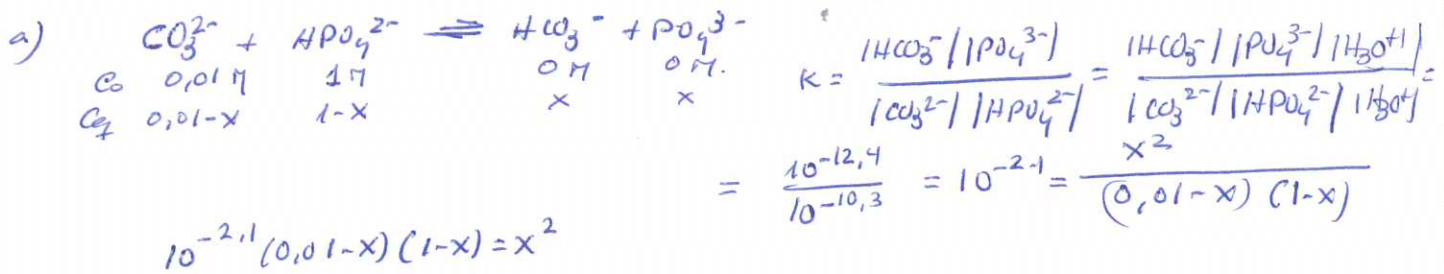 a) CO₃²⁻ + HPO₄²⁻ ⇌ HCO₃⁻ + PO₄³⁻
C₀ 0,01 M 1 M 0 M 0 M.
Ceq 0,01-x 1-x x x
K = |HCO₃⁻| |PO₄³⁻| / |CO₃²⁻| |HPO₄²⁻| = |HCO₃⁻| |PO₄³⁻| |H₃O⁺| / |CO₃²⁻| |HPO₄²⁻| |H₃O⁺| =
= 10^-12,4 / 10^-10,3 = 10^-2,1 = x² / (0,01-x) (1-x)
10^-2,1 (0,01-x) (1-x) = x²